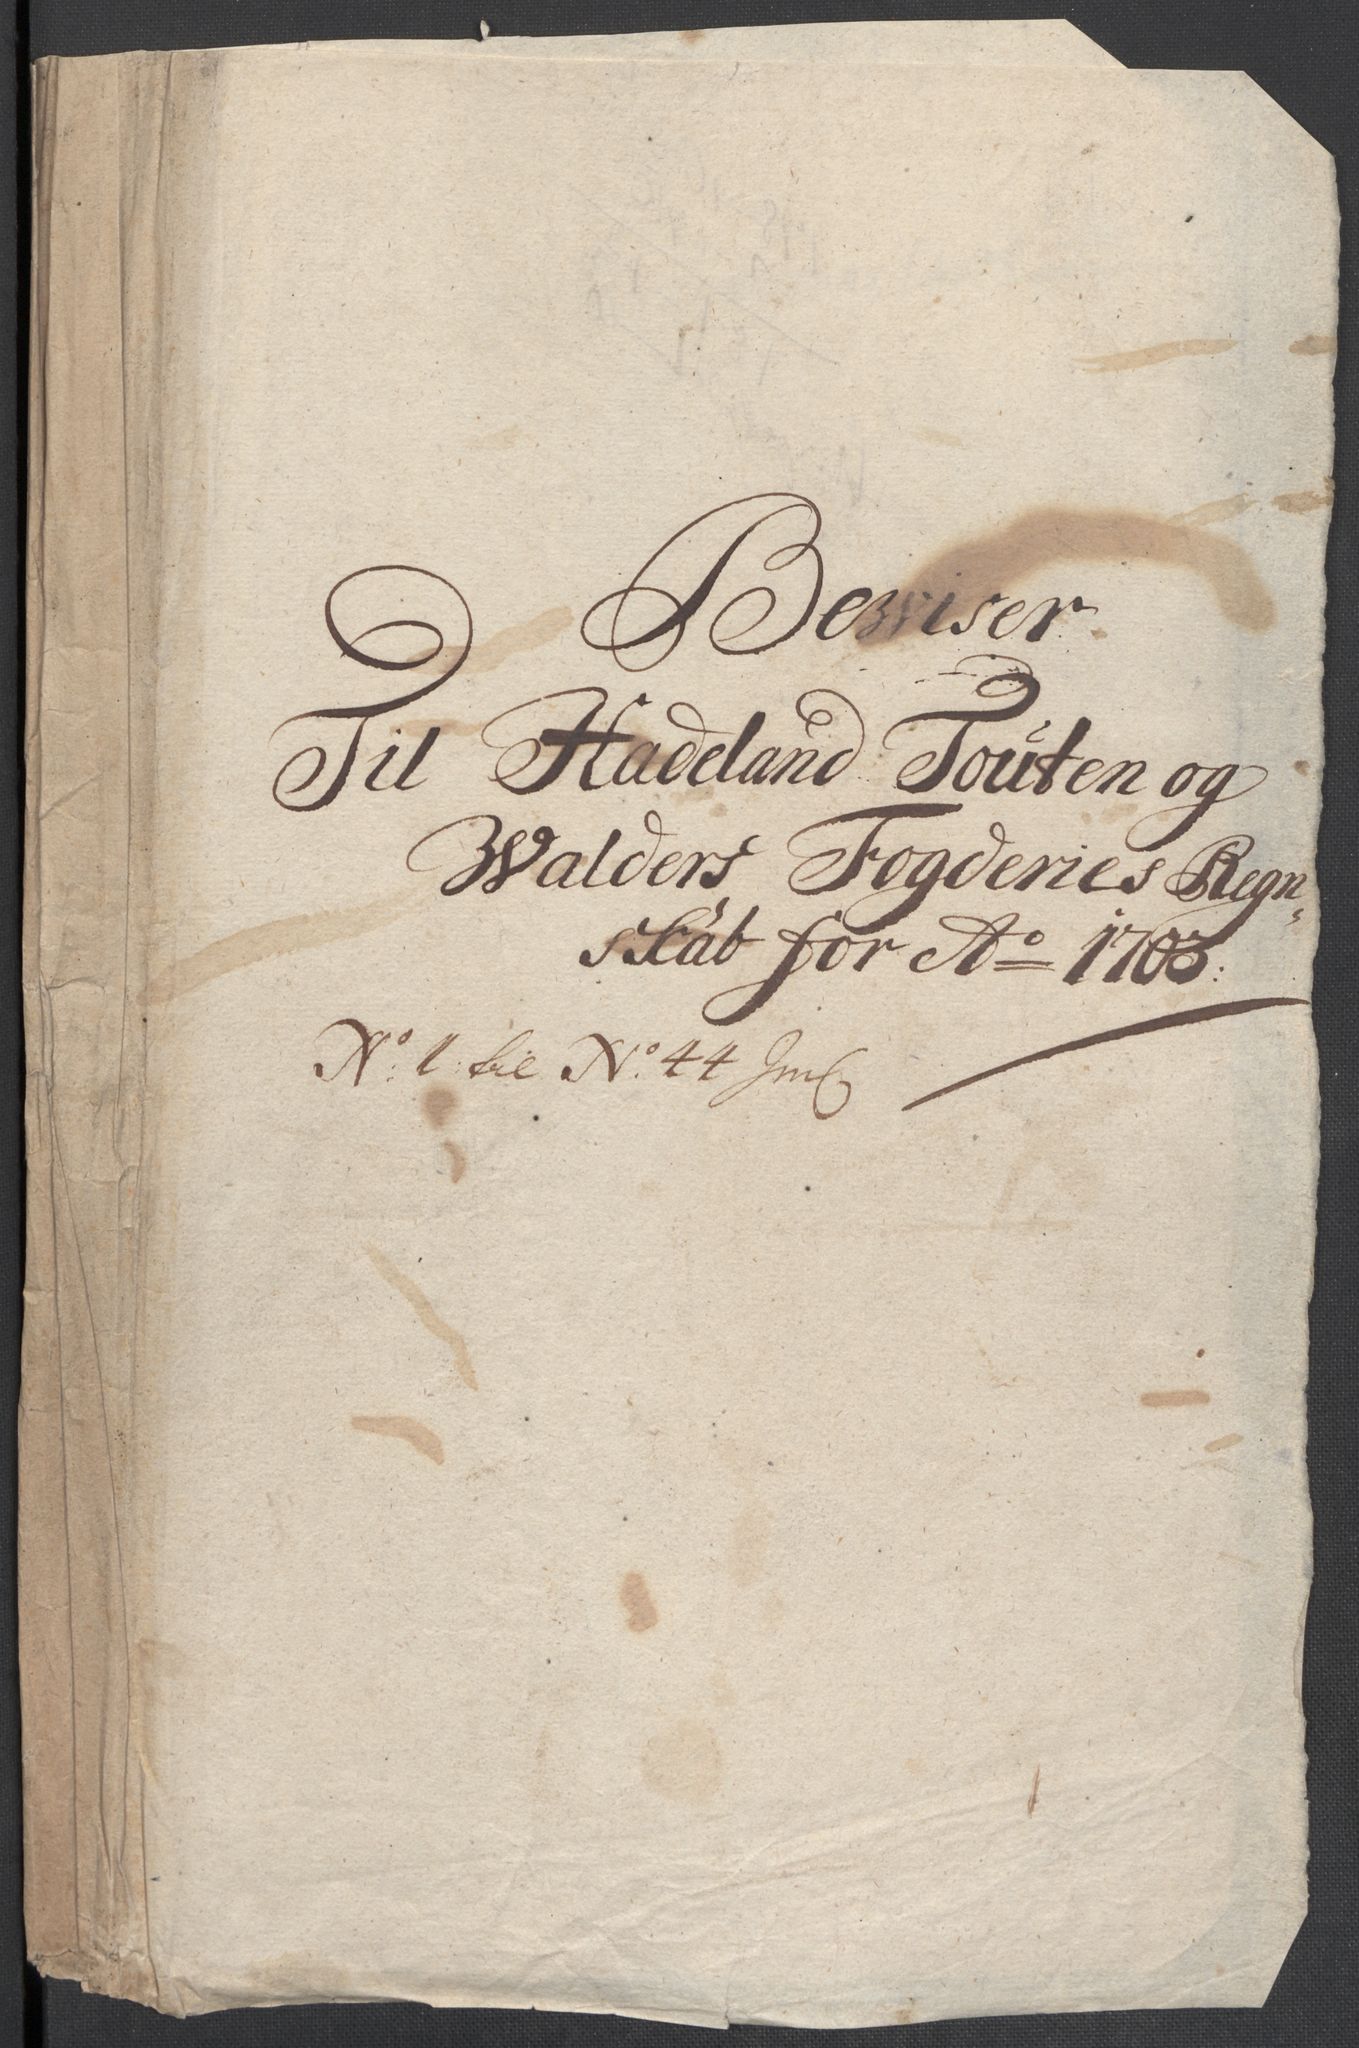 Bewiser
Til Hadeland Toúten og
Walders Fogderies Regn„
skab for Ao 1703:
No: 1: til No: 44 Inc